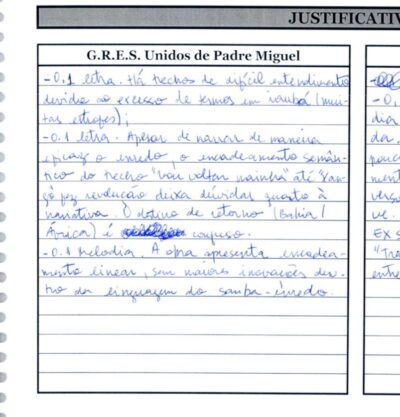 JUSTIFICATIV
G.R.E.S. Unidos de Padre Miguel
-0,1 letra. Há trechos de difícil entendimento
devido ao excesso de termos em iorubá (mui-
tas estrofes);
-0.1 letra. Apesar de narrar de maneira
eficaz o enredo, o encadeamento semân-
tico do trecho "vou voltar mainha" até "Xan-
gô fez revolução deixa dúvidas quanto à
narrativa. O destino de retorno (Bahia/
África) é confuso.
-0.1 Melodia. A obra apresenta encadea-
mento linear, sem maiores inovações den-
tro da linguagem do samba-enredo.